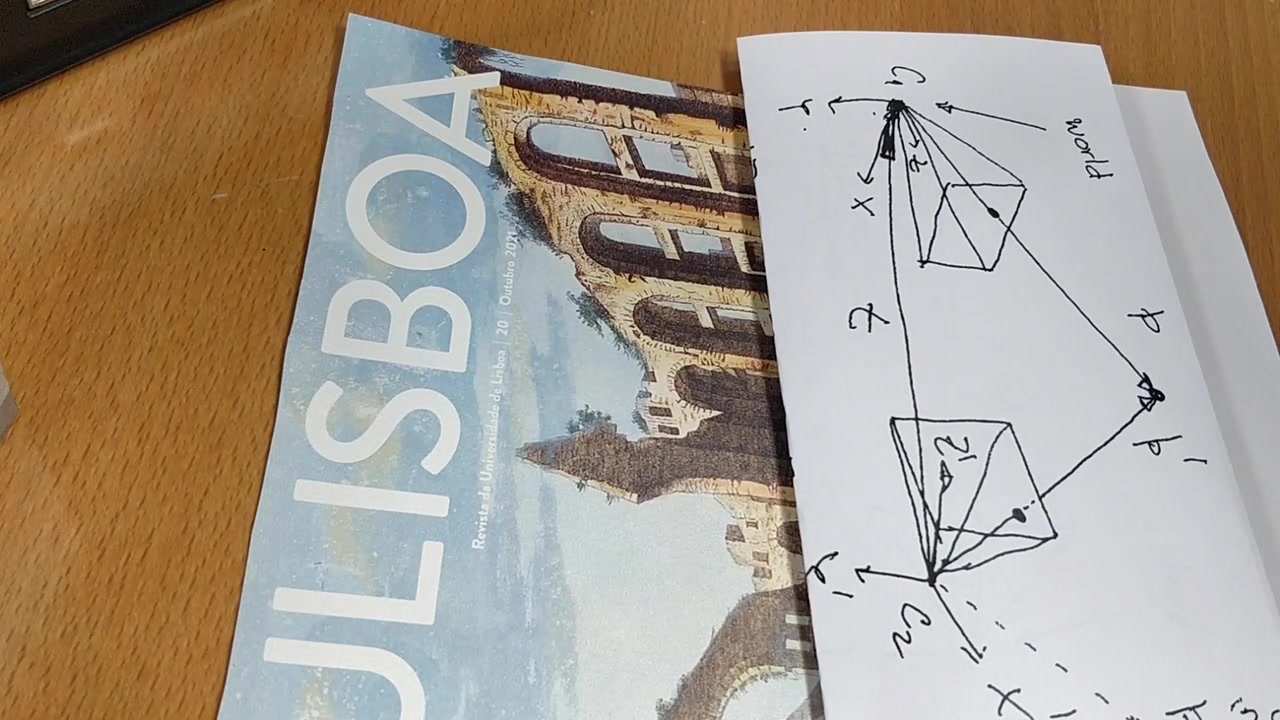 ULISBOA
Revista da Universidade de Lisboa | 20 | Outubro 2021
world
C1
Y
X
Z
p
p'
Z'
Y'
C2
X